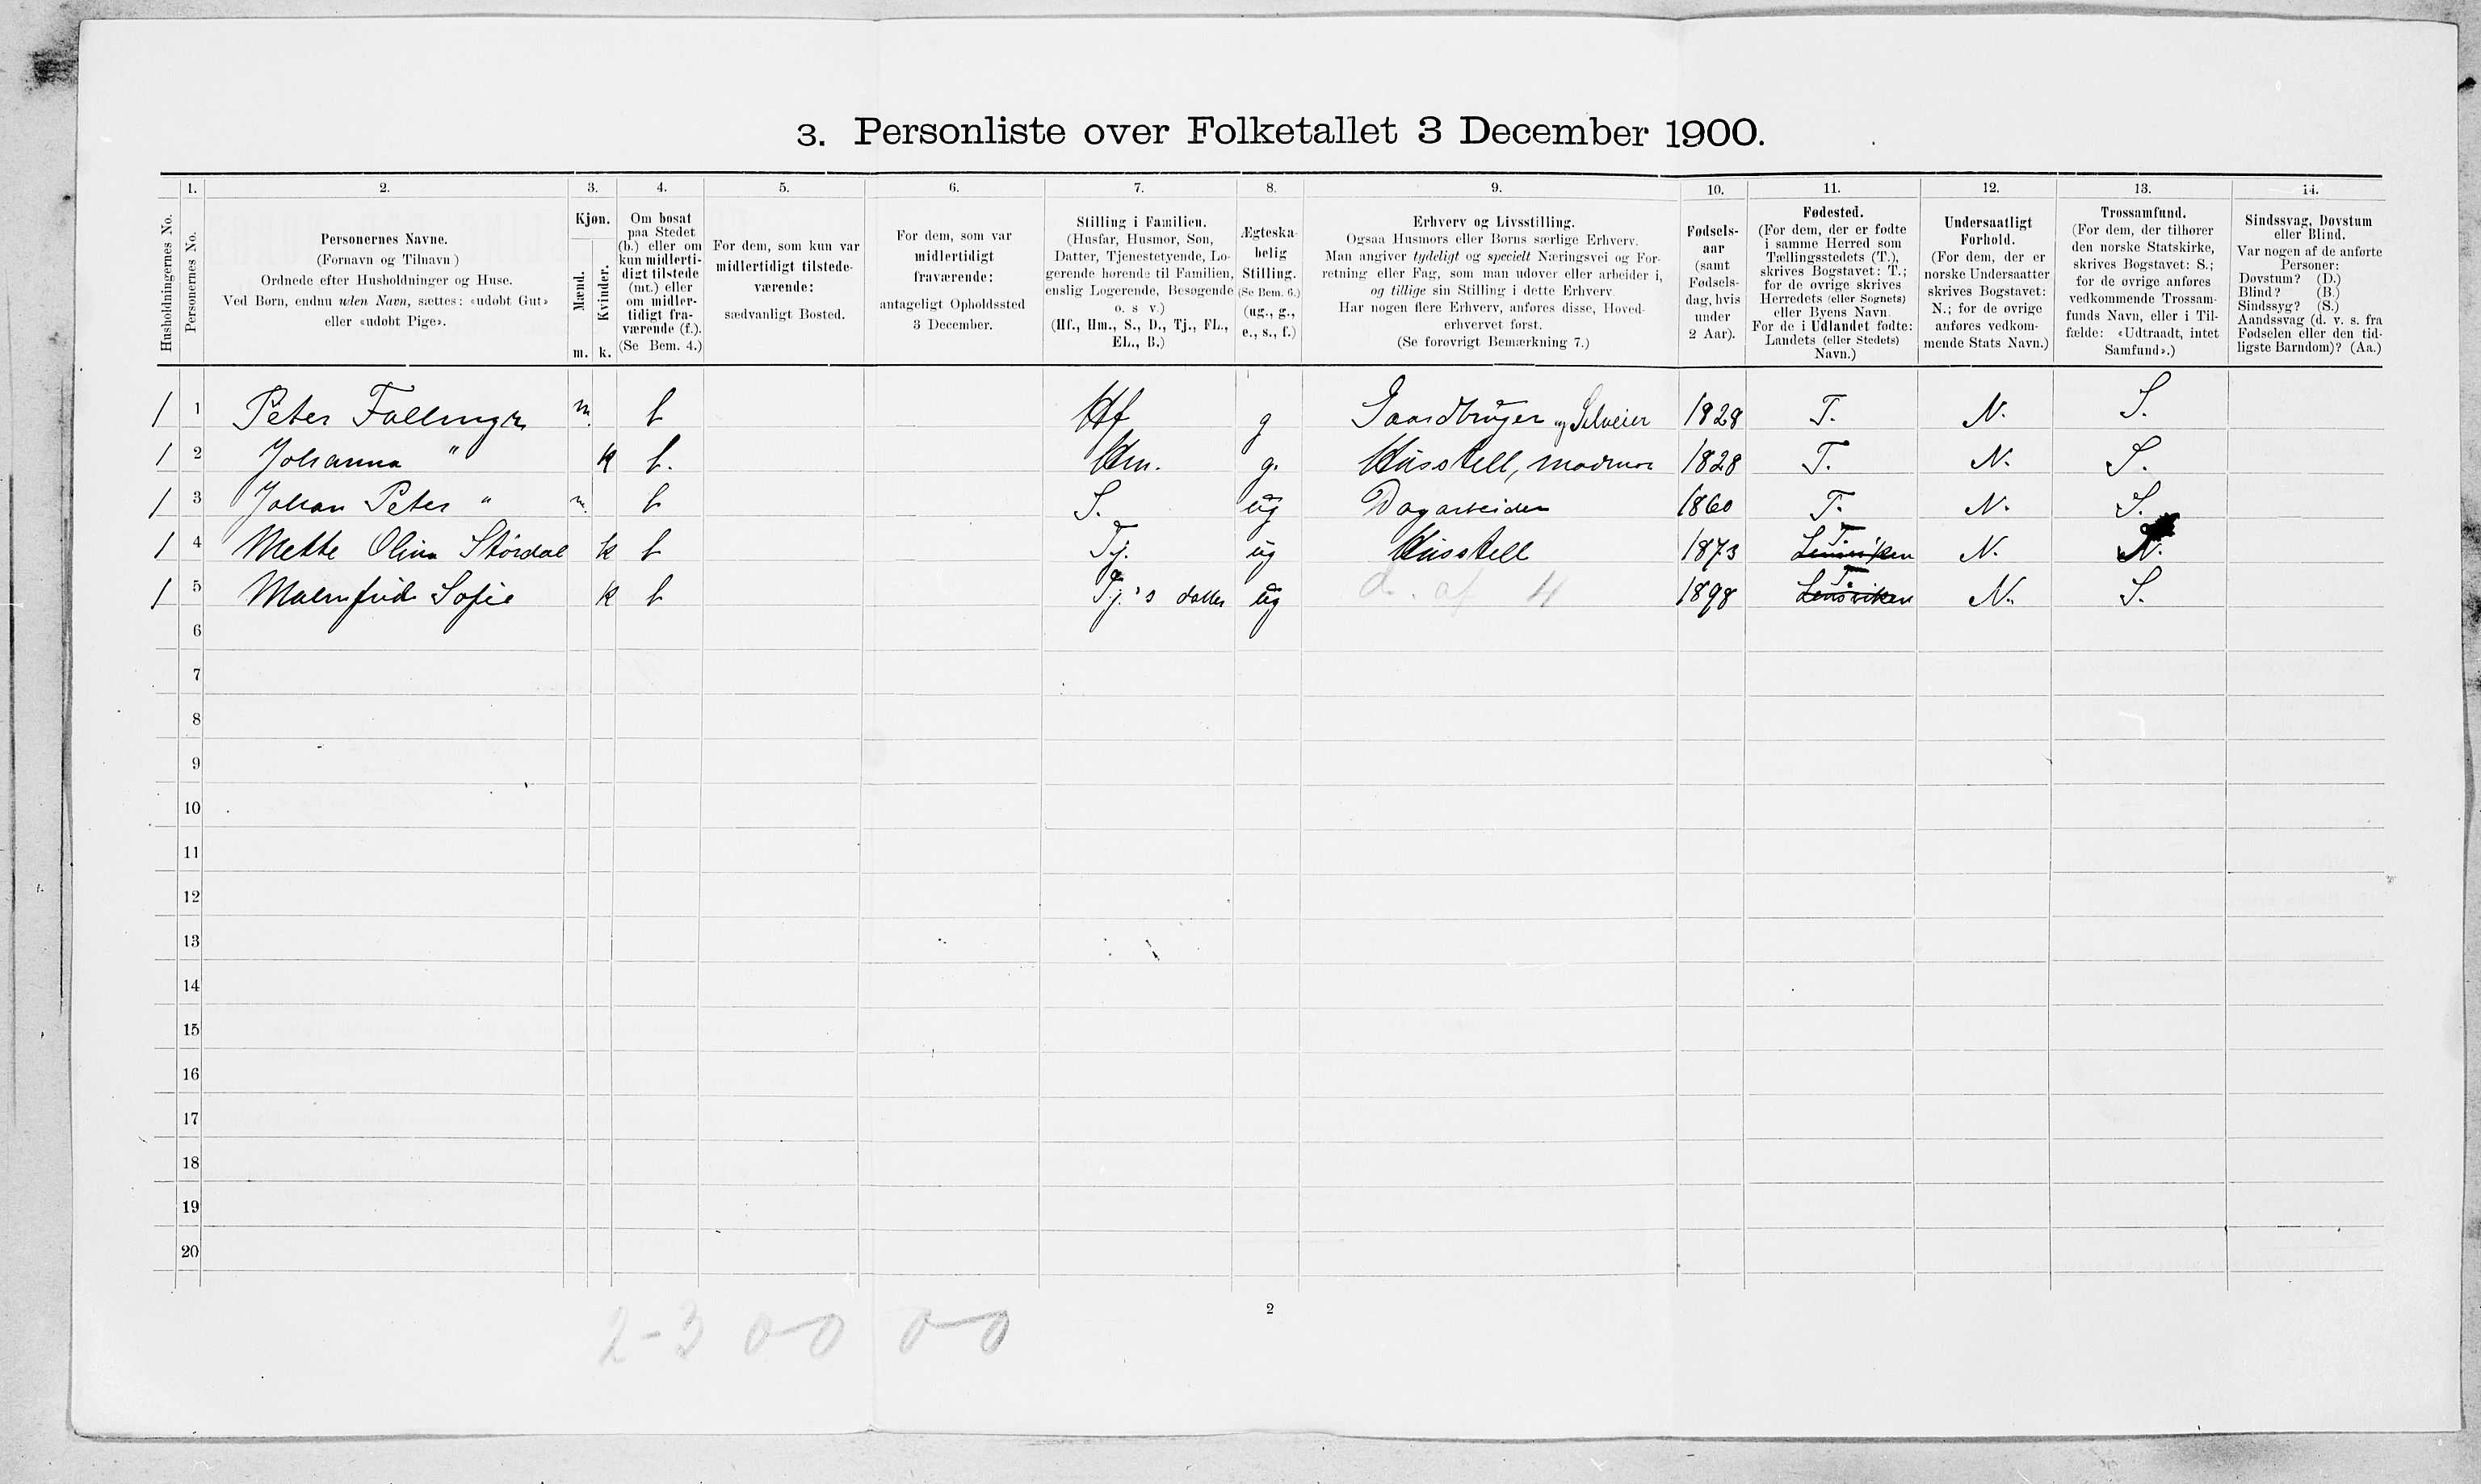 3. Personliste over Folketallet 3 December 1900.
1. 2. 3. 4. 5. 6. 7. 8. 9. 10. 11. 12. 13. 14.
Husholdningernes No.
Personernes No.
Personernes Navne.
(Fornavn og Tilnavn)
Ordnede efter Husholdninger og Huse.
Ved Børn, endnu uden Navn, sættes: «udøbt Gut»
eller «udøbt Pige».
Kjøn.
Mænd.
Kvinder.
m. k.
Om bosat
paa Stedet
(b.) eller om
kun midlerti-
digt tilstede
(mt.) eller
om midler-
tidigt fra-
værende (f.).
(Se Bem. 4.)
For dem, som kun var
midlertidigt tilstede-
værende:
sædvanligt Bosted.
For dem, som var
midlertidigt
fraværende:
antageligt Opholdssted
3 December.
Stilling i Familien.
(Husfar, Husmor, Søn,
Datter, Tjenestetyende, Lo-
gerende hørende til Familien,
enslig Logerende, Besøgende
o. s v.)
(Hf., Hm., S., D., Tj., FL.,
EL., B.)
Ægteska-
belig
Stilling.
(Se Bem. 6.)
(ug., g.,
e., s., f.)
Erhverv og Livsstilling.
Ogsaa Husmors eller Børns særlige Erhverv.
Man angiver tydeligt og specielt Næringsvei og For-
retning eller Fag, som man udøver eller arbeider i,
og tillige sin Stilling i dette Erhverv.
Har nogen flere Erhverv, anføres disse, Hoved-
erhvervet først.
(Se forøvrigt Bemærkning 7.)
Fødsels-
aar
(samt
Fødsels-
dag, hvis
under
2 Aar).
Fødested.
(For dem, der er fødte
i samme Herred som
Tællingsstedets (T.),
skrives Bogstavet: T.;
for de øvrige skrives
Herredets (eller Sognets)
eller Byens Navn.
For de i Udlandet fødte:
Landets (eller Stedets)
Navn.)
Undersaatligt
Forhold.
(For dem, der er
norske Undersaatter
skrives Bogstavet:
N.; for de øvrige
anføres vedkom-
mende Stats Navn.)
Trossamfund.
(For dem, der tilhører
den norske Statskirke,
skrives Bogstavet: S.;
for de øvrige anføres
vedkommende Trossam-
funds Navn, eller i Til-
fælde: «Udtraadt, intet
Samfund».)
Sindssvag, Døvstum
eller Blind.
Var nogen af de anførte
Personer:
Døvstum? (D.)
Blind? (B.)
Sindssyg? (S.)
Aandssvag (d. v. s. fra
Fødselen eller den tid-
ligste Barndom)? (Aa.)
1 1 Peter m. b Hf g Gaardbruger og Selveier 1828 T. N. S.
1 2 Johanna " k b. Hm. g. Husstell, madmor 1828 T. N. S.
1 3 Johan Peter " m. b S. ug Dagarbeider 1860 T. N. S.
1 4 Mette Olina Stórdal k b Tj. ug Husstell 1873 T. N. N.
1 5 Malmfrid Sofie k b Tj.'s datter ug d. af 4 1898 Lensviken T. N. S.
6
7
8
9
10
11
12
13
14
15
16
17
18
19
20
2
2-3 0-0 0-0